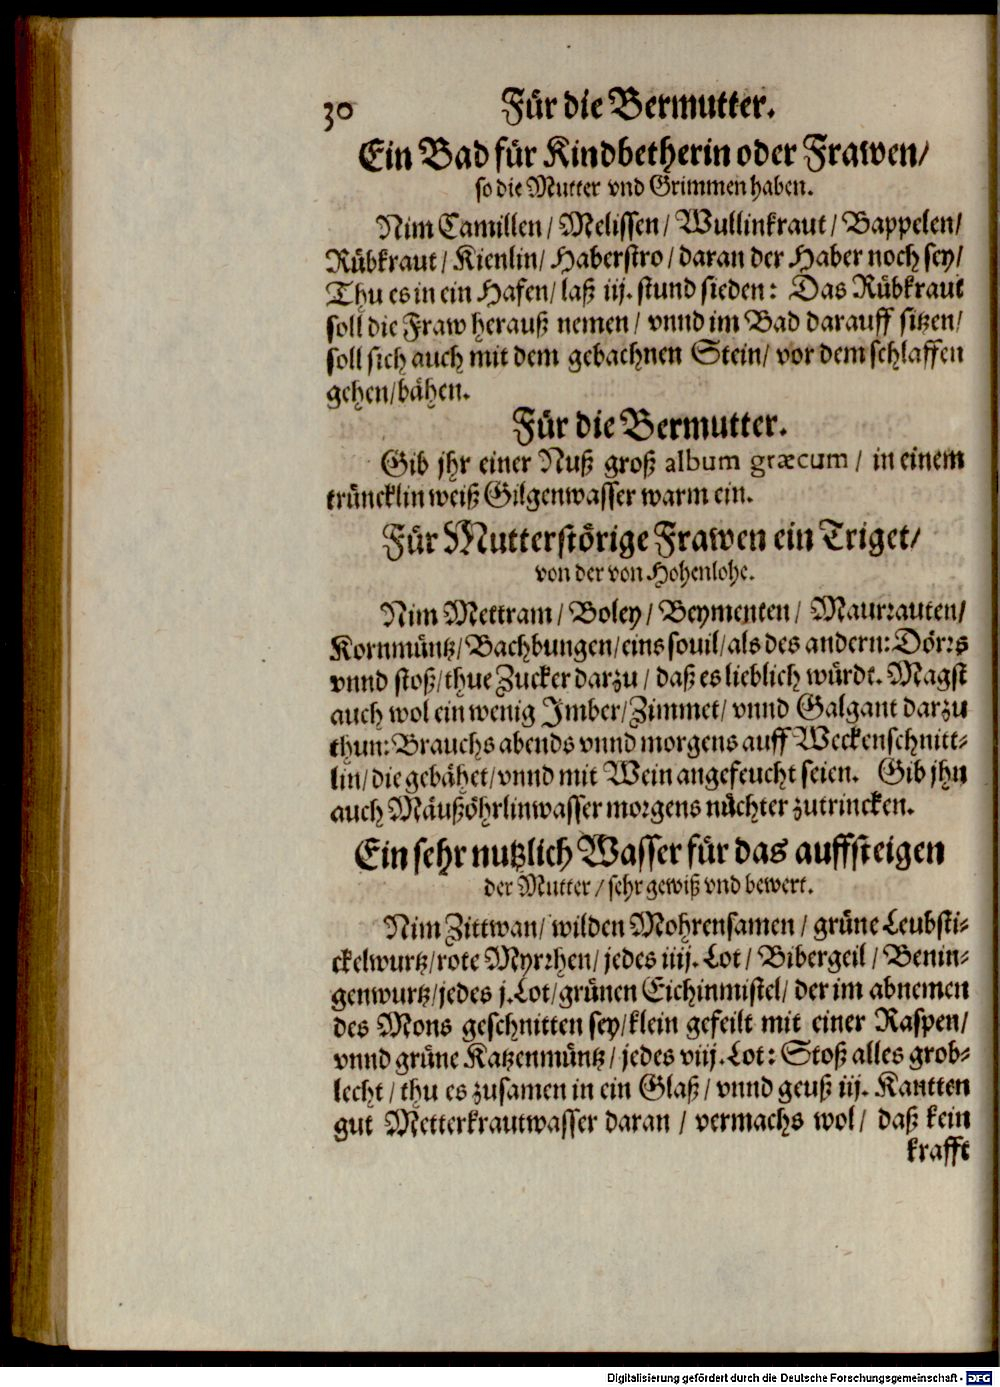 30 Für die Bermutter.
Ein Bad für Kindbetherin oder Frawen/
so die Mutter vnd Grimmen haben.
Nim Camillen / Melissen / Wullinkraut / Bappelen/
Rübkraut / Kienlin / Haberstro / daran der Haber noch sey/
Thu es in ein Hafen / laß iij. stund sieden: Das Rübkraut
soll die Fraw herauß nemen / vnnd im Bad darauff sitzen/
soll sich auch mit dem gebachnen Stein / vor dem schlaffen
gehen/bähen.
Für die Bermutter.
Gib jhr einer Nuß groß album græcum / in einem
trüncklin weiß Gilgenwasser warm ein.
Für Mutterstörige Frawen ein Triget/
von der von Hohenlohe.
Nim Mettram / Boley / Beymenten / Maurrauten/
Kornmüntz/Bachbungen/eins souil/als des andern: Dörrs
vnnd stoß/thue Zucker darzu / daß es lieblich würdt. Magst
auch wol ein wenig Imber/Zimmet/ vnnd Galgant darzu
thun: Brauchs abends vnnd morgens auff Weckenschnitt-
lin/die gebähet/vnnd mit Wein angefeucht seien. Gib jhn
auch Mäußöhrlinwasser morgens nüchter zutrincken.
Ein sehr nutzlich Wasser für das auffsteigen
der Mutter / sehr gewiß vnd bewert.
Nim Zittwan/ wilden Mohrensamen / grüne Leubsti-
ckelwurtz/rote Myrrhen/ jedes iiij. Lot / Bibergeil / Benin-
genwurtz/jedes j. Lot/grünen Eichinmistel/ der im abnemen
des Mons geschnitten sey/klein gefeilt mit einer Raspen/
vnnd grüne Katzenmüntz/ jedes viij. Lot: Stoß alles grob-
lecht / thu es zusamen in ein Glaß / vnnd geuß iij. Kantten
gut Metterkrautwasser daran / vermachs wol / daß kein
krafft
Digitalisierung gefördert durch die Deutsche Forschungsgemeinschaft - DFG